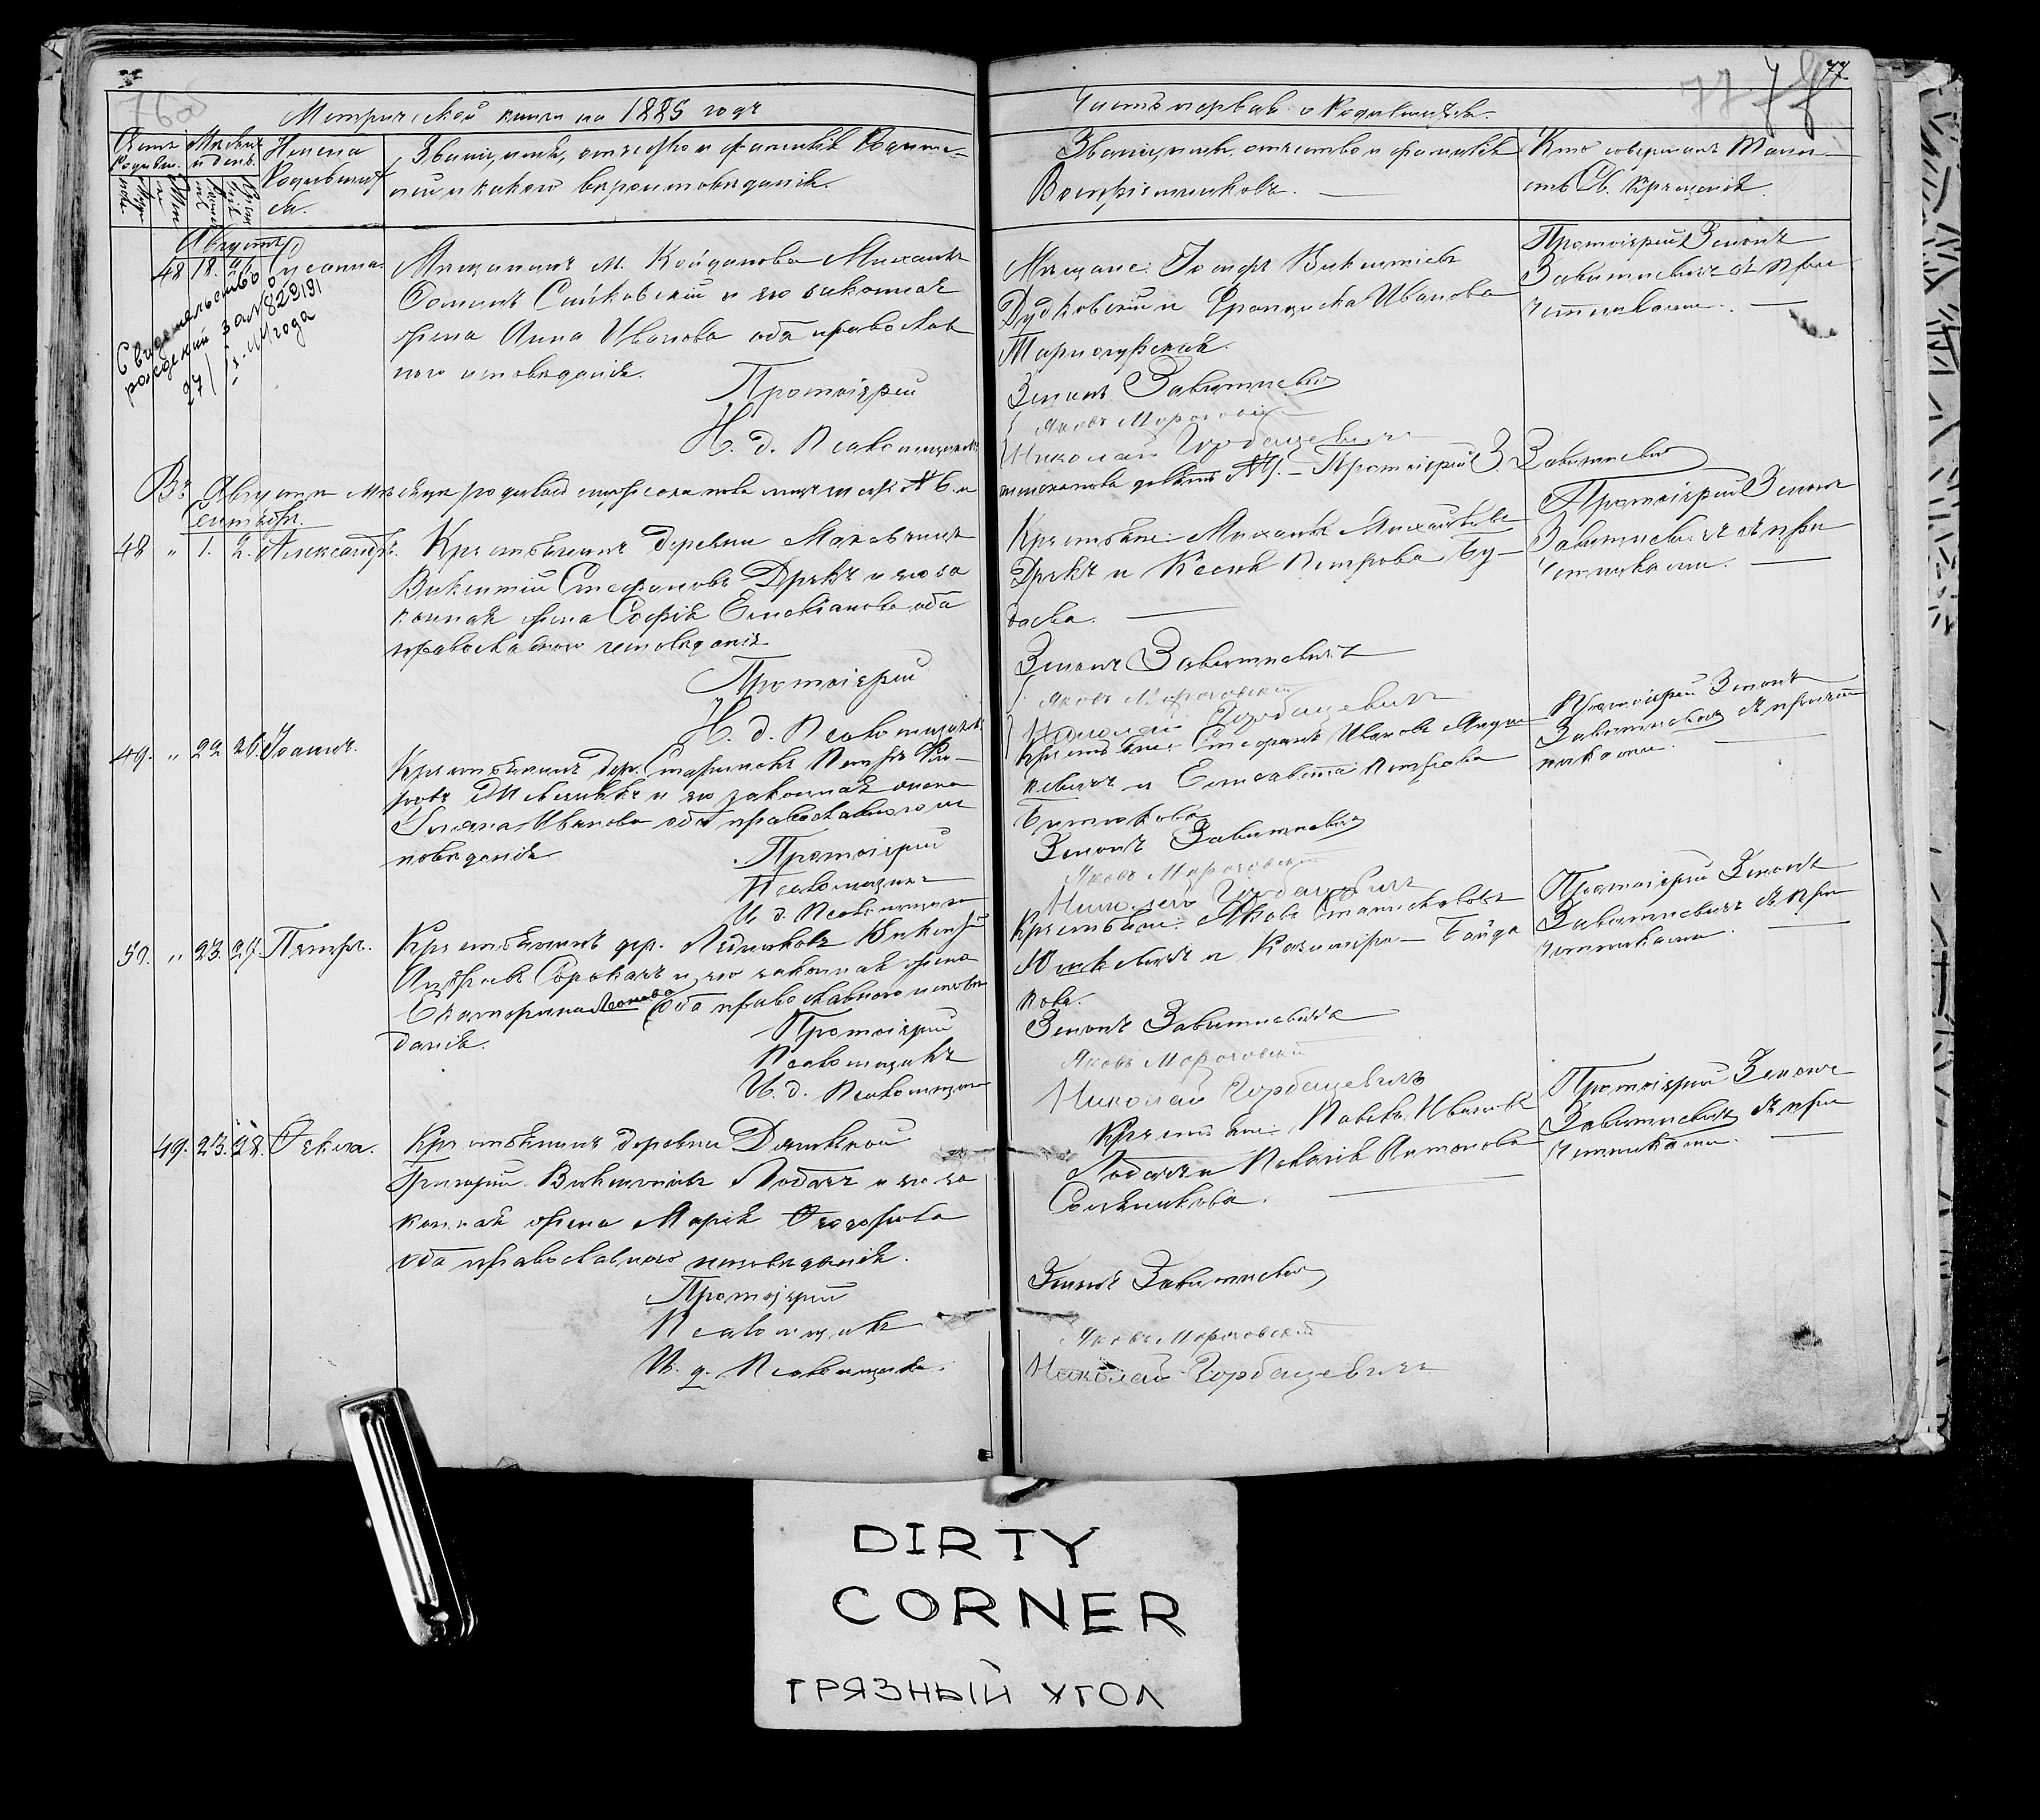 76об
77 77
77
Метрической книги на 1885 годъ
Часть первая о Родившихся.
Счетъ Родивш.
Мѣсяцъ и день.
Имена Родившихся.
Званіе, имя, отчество и фамилія Родите-
лей и какого вѣроисповѣданія.
Званіе, имя, отчество и фамилія
Воспріемниковъ.
Кто совершалъ Таин-
ство Св. Крещенія.
Августъ
48 18. Сусанна.
Свидетельство о
рождении за № 829191
27/
г. года
Мѣщанинъ м. Койданова Михаилъ
Сайковскій и его законная
жена Анна Иванова оба православ
наго исповѣданія.
Протоіерей
И. д. Псаломщика
Мѣщане: Іосифъ Викентіевъ
Дудковскій и Франциска Иванова
Зенонъ Завитневичъ
Яковъ Мороховскій
Николай Горбацевичъ
Протоіерей Зенонъ
Завитневичъ съ при
четниками.
Въ Августѣ мѣсяцѣ родилось мужескаго пола шесть № 6. и
женскаго девять № 9. – Протоіерей З. Завитневичъ
Сентябрь.
48 " 1. 2. Александръ.
Крестьянинъ деревни
Викентій Стефановъ Дрыкъ и его за
конная жена Софія Емельянова оба
православнаго исповѣданія.
Протоіерей
И. д. Псаломщика
Крестьяне: Михаилъ Михайловъ
Дрыкъ и Ксенія Петрова Бу-
Зенонъ Завитневичъ
Яковъ Мороховскій
Николай Горбацевичъ
Протоіерей Зенонъ
Завитневичъ съ при
четниками.
49. " 22 26. Іоаннъ.
Крестьянинъ дер. Старинокъ Петръ Ки-
ровъ и его законная жена
Ульяна Иванова оба православнаго ис
повѣданія
Протоіерей
Псаломщикъ
И. д. Псаломщика
Крестьяне: Стефанъ Ивановъ
и Елисавета Петрова
Зенонъ Завитневичъ
Яковъ Мороховскій
Николай Горбацевичъ
Протоіерей Зенонъ
Завитневичъ съ причет
никами.
50. " 23. 27. Петръ.
Крестьянинъ дер. Викентій
Андреевъ Сорокачъ и его законная жена
Екатерина Леонова оба православнаго исповѣ
данія.
Протоіерей
Псаломщикъ
И. д. Псаломщика
Крестьяне: Яковъ Станиславовъ
Юшкевичъ и Казимира Байда
кова.
Зенонъ Завитневичъ
Яковъ Мороховскій
Николай Горбацевичъ
Протоіерей Зенонъ
Завитневичъ съ при
четниками.
49. 23. 28. Ѳекла.
Крестьянинъ деревни
Григорій Викентіевъ Лобачъ и его за
конная жена Марія Ѳеодорова
оба православнаго исповѣданія.
Протоіерей
Псаломщикъ
И. д. Псаломщика.
Крестьяне: Павелъ Ивановъ
Лобачъ и Пелагія Антонова
Зенонъ Завитневичъ
Яковъ Мороховскій
Николай Горбацевичъ
Протоіерей Зенонъ
Завитневичъ съ при
четниками.
DIRTY
CORNER
ГРЯЗНЫЙ УГОЛ